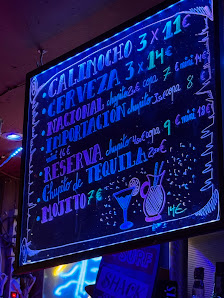 CALIMOCHO 3 x 11€
CERVEZA 3 x 14€
NACIONAL chupito 2€ copa 7 € mini 14€
IMPORTACIÓN chupito copa 8
mini
RESERVA chupito copa 9 € mini
Chupito de TEQUILA 2€
MOJITO 7€
14€